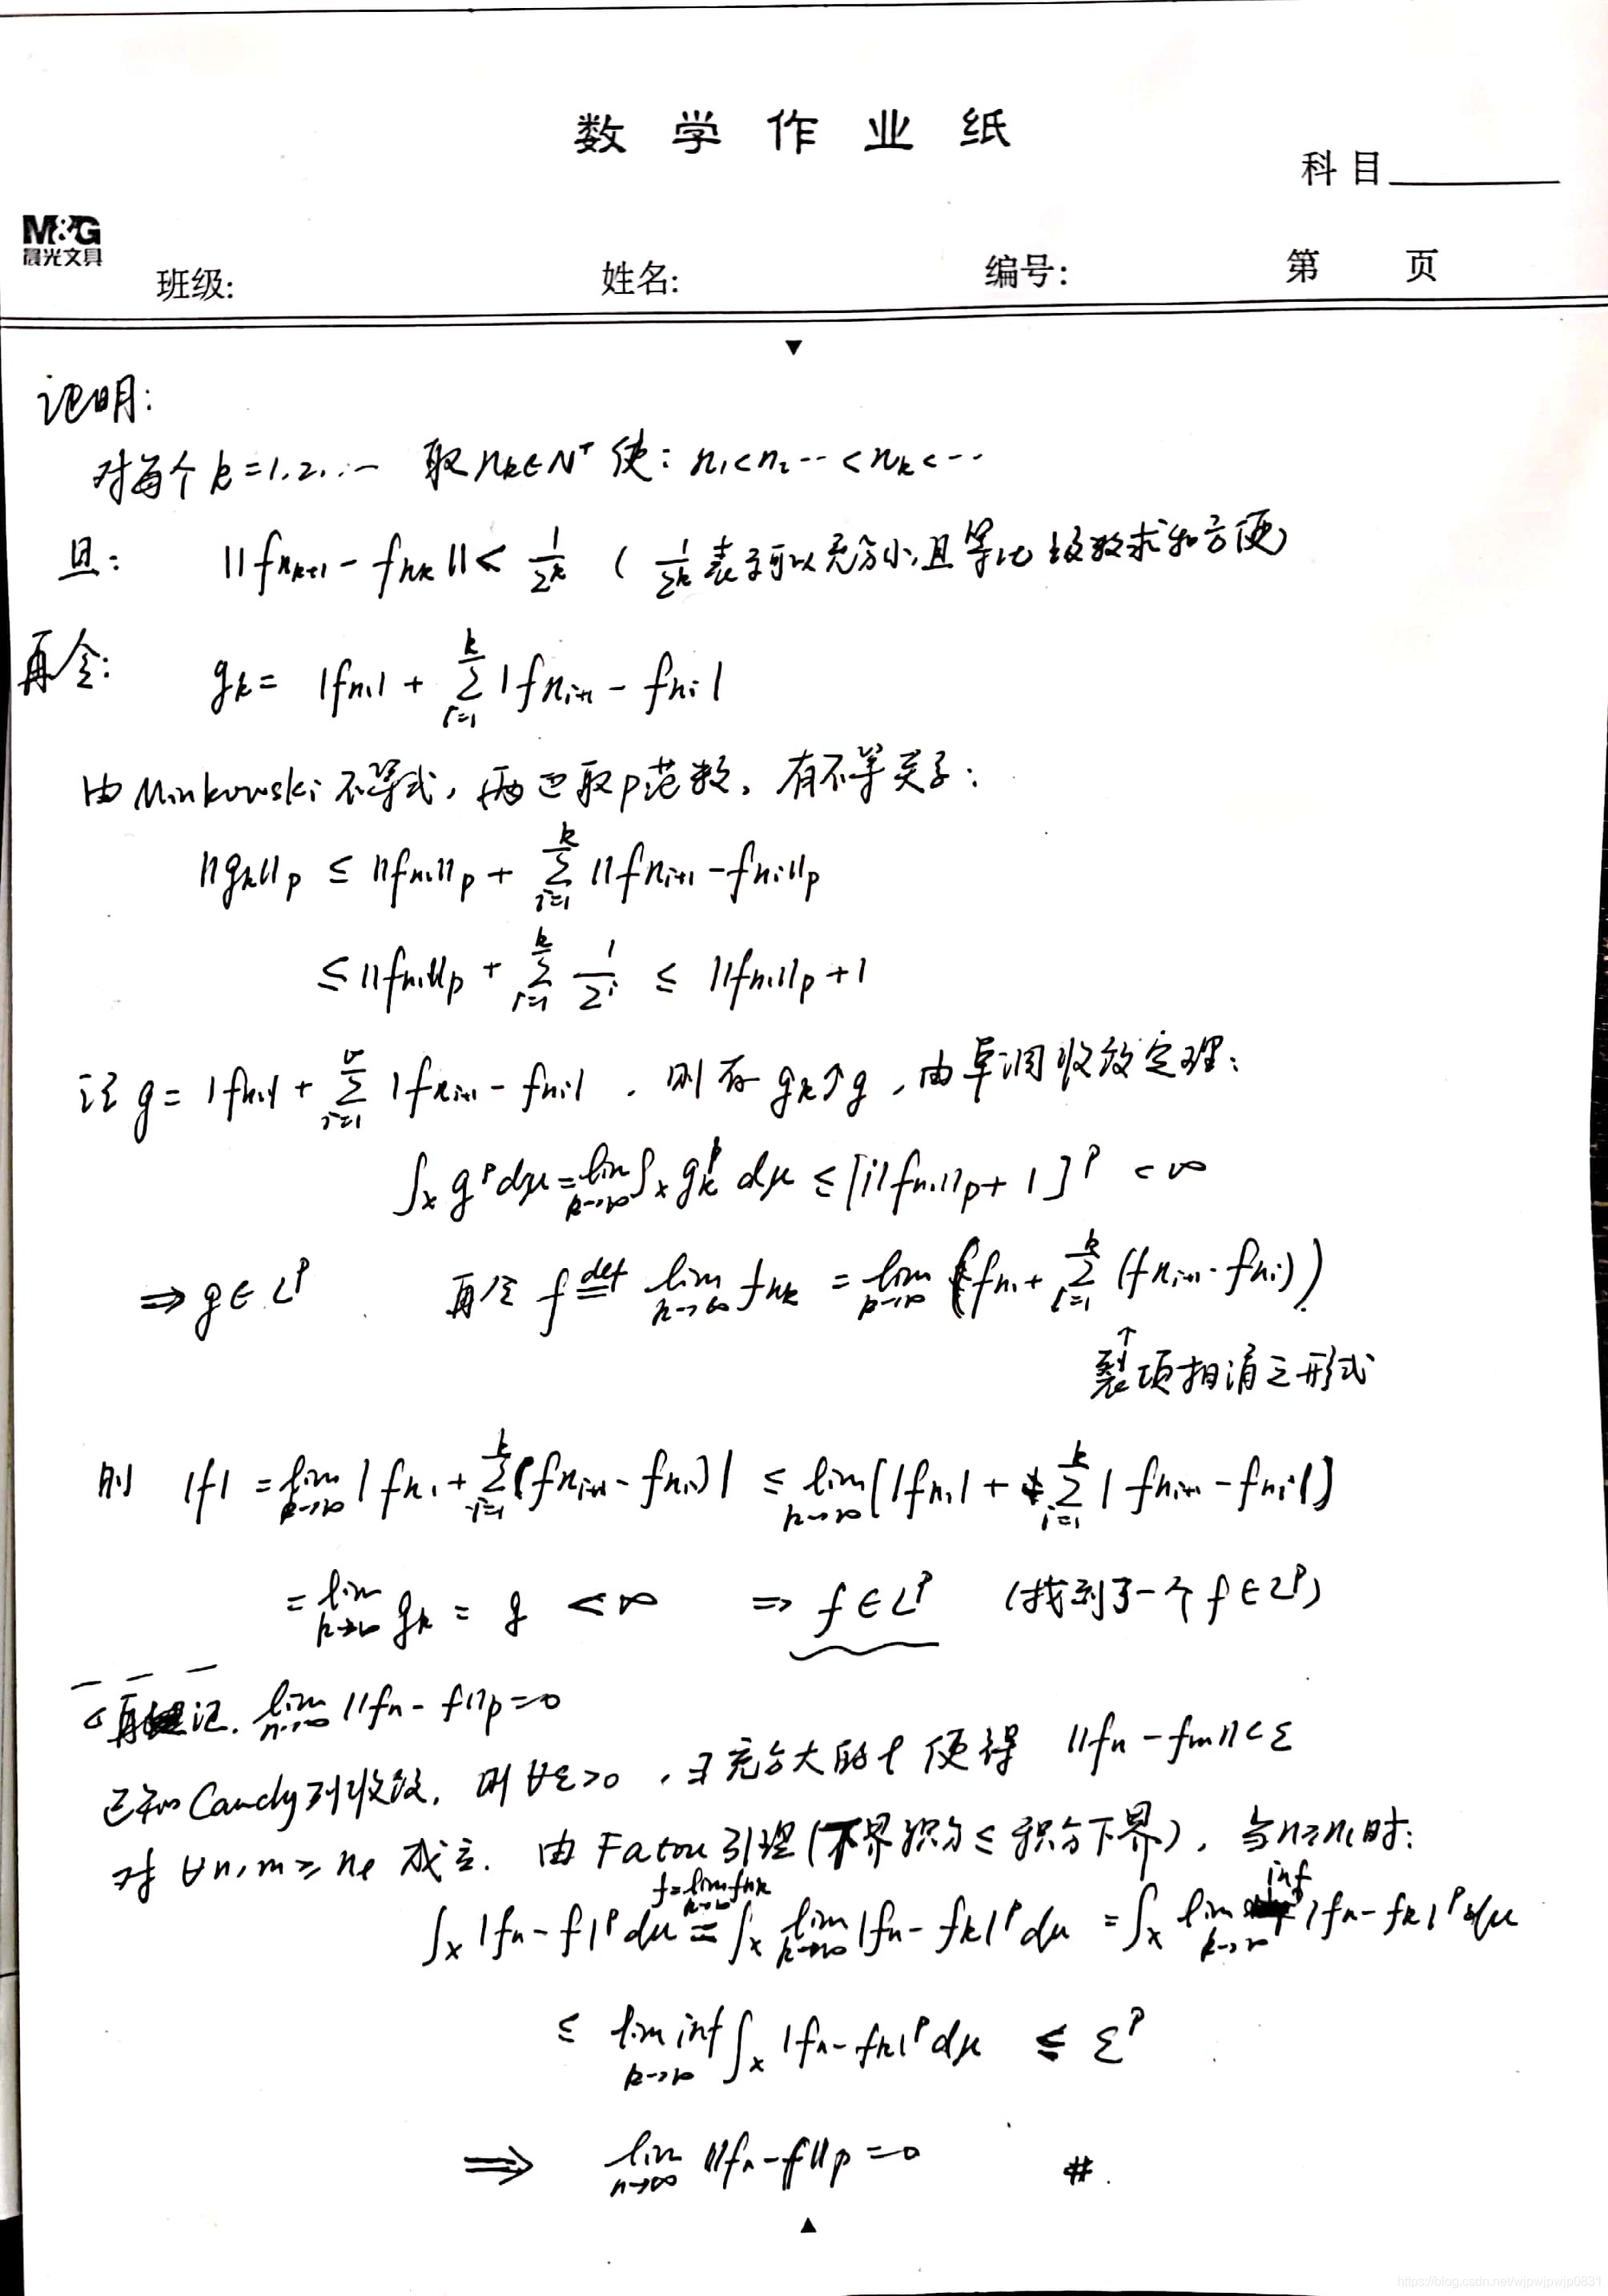 数学作业纸
科目
M&G
晨光文具
班级: 姓名: 编号: 第 页
证明:
对每个 k=1,2,… 取 n_k∈N⁺ 使: n₁<n₂…<n_k<…
且: ||f_{n_{k+1}} - f_{n_k}|| < 1/2^k ( 1/2^k 表示可以充分小,且等比级数求和方便)
再令: g_k = |f_{n_1}| + Σ_{i=1}^{k} |f_{n_{i+1}} - f_{n_i}|
由 Minkowski 不等式, 两边取p范数, 有不等关系:
||g_k||_p ≤ ||f_{n_1}||_p + Σ_{i=1}^{k} ||f_{n_{i+1}} - f_{n_i}||_p
≤ ||f_{n_1}||_p + Σ_{i=1}^{k} 1/2^i ≤ ||f_{n_1}||_p + 1
记 g = |f_{n_1}| + Σ_{i=1}^{∞} |f_{n_{i+1}} - f_{n_i}| . 则有 g_k↑g , 由单调收敛定理:
∫_X g^p dμ = lim_{k→∞} ∫_X g_k^p dμ ≤ [||f_{n_1}||_p + 1]^p < ∞
⇒ g∈L^p 再令 f ≝ lim_{k→∞} f_{n_k} = lim_{k→∞} (f_{n_1} + Σ_{i=1}^{k} (f_{n_{i+1}} - f_{n_i}))
↑
裂项相消之形式
则 |f| = lim_{k→∞} |f_{n_1} + Σ_{i=1}^{k} (f_{n_{i+1}} - f_{n_i})| ≤ lim_{k→∞} [|f_{n_1}| + Σ_{i=1}^{k} |f_{n_{i+1}} - f_{n_i}|]
= lim_{k→∞} g_k = g < ∞ ⇒ f∈L^p (找到了一个 f∈L^p)
再证. lim_{n→∞} ||f_n - f||_p = 0
已知 Cauchy列收敛, 则 ∀ε>0 , ∃充分大的 l 使得 ||f_n - f_m|| < ε
对 ∀n,m ≥ n_l 成立. 由 Fatou 引理(下界积分≤积分下界), 当n≥n_l时:
f=lim_{k→∞} f_{n_k}
∫_X |f_n - f|^p dμ = ∫_X lim_{k→∞} |f_n - f_k|^p dμ = ∫_X lim inf_{k→∞} |f_n - f_k|^p dμ
≤ lim inf_{k→∞} ∫_X |f_n - f_k|^p dμ ≤ ε^p
⇒ lim_{n→∞} ||f_n - f||_p = 0 #.
https://blog.csdn.net/wjpwjpwjp0831